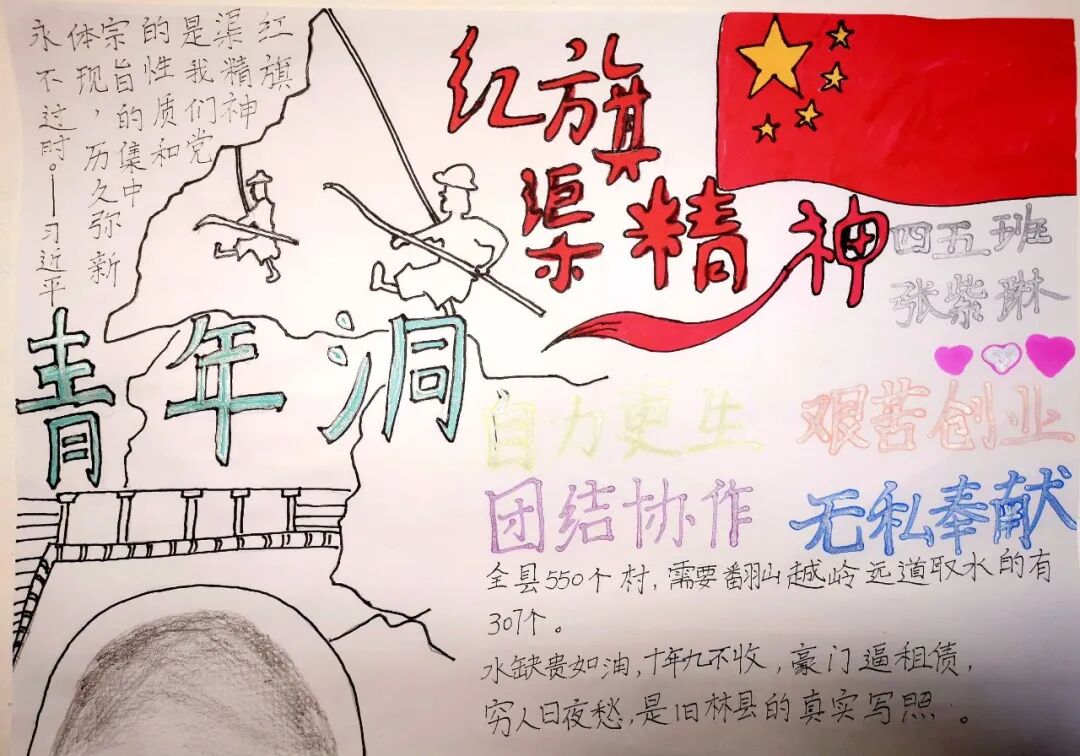 红旗
渠精神
是我们党
的性质和
宗旨的集中
体现，历久弥新
永不过时。—习近平
红旗
渠精神
四五班
张紫琳
青年洞
自力更生 艰苦创业
团结协作 无私奉献
全县550个村，需要翻山越岭远道取水的有
307个。
水缺贵如油，十年九不收，豪门逼租债，
穷人日夜愁，是旧林县的真实写照。